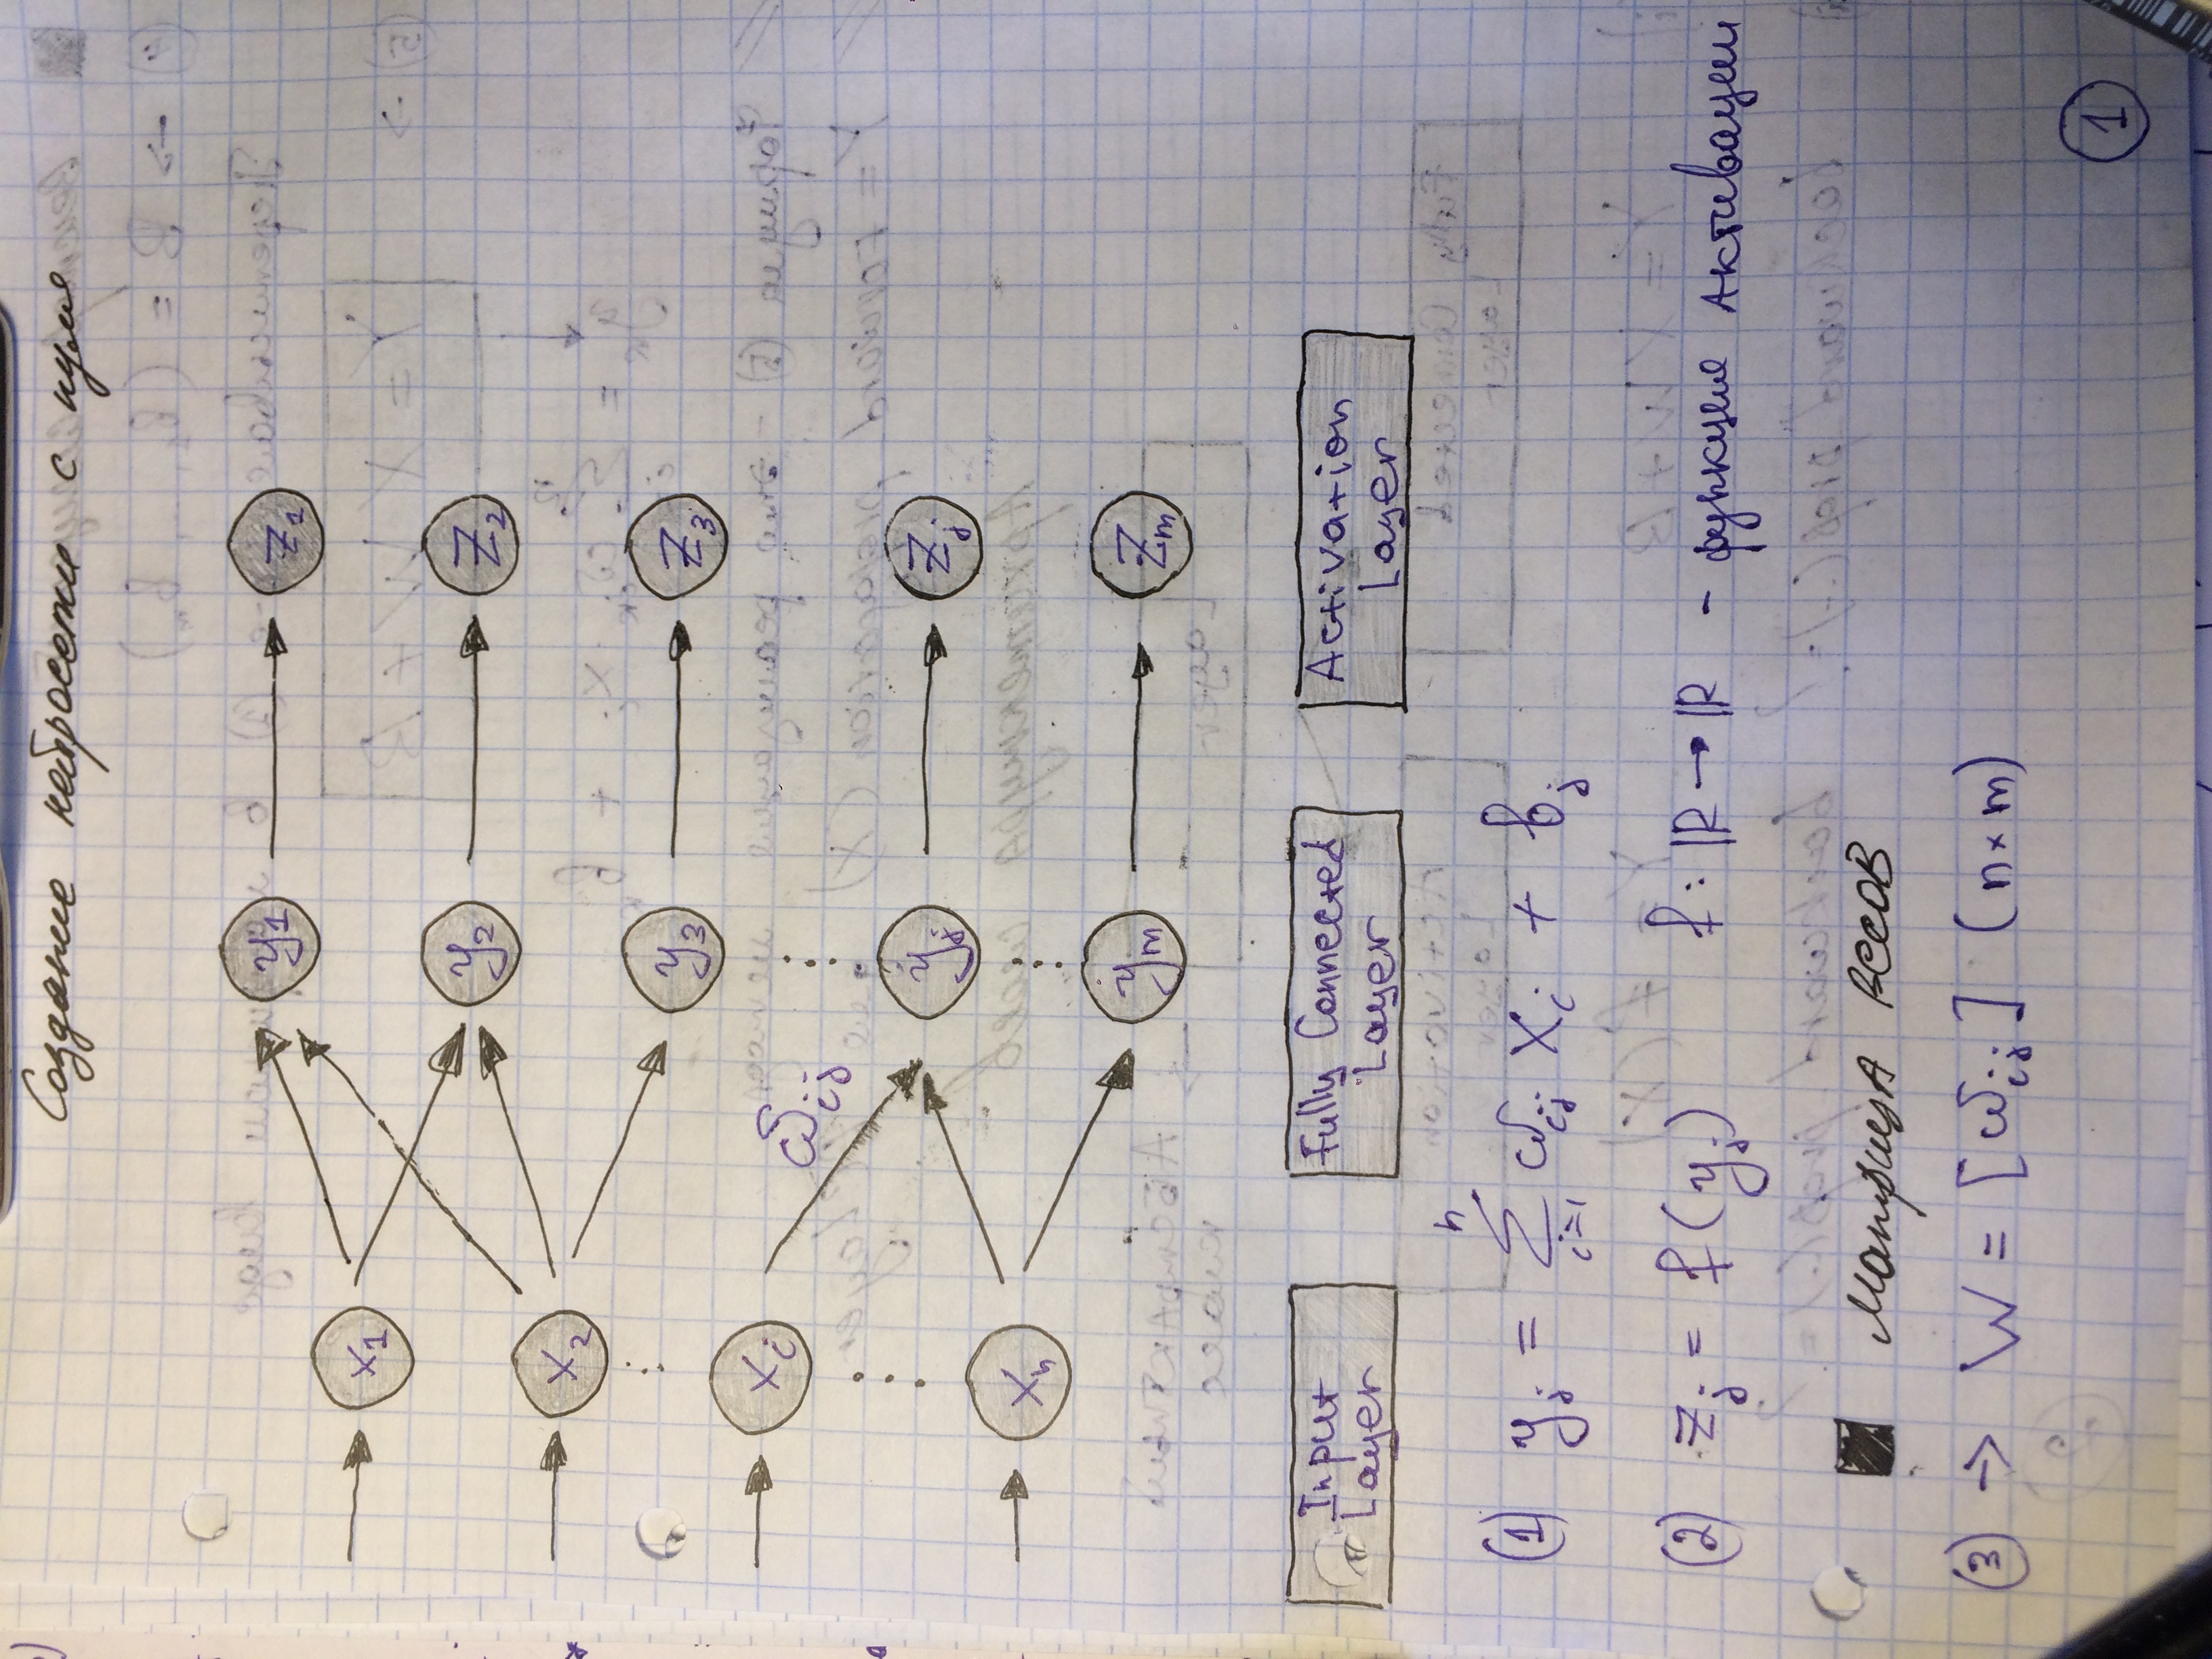 Создание нейросети с нуля
x₁ y₁ z₁
x₂ y₂ z₂
y₃ z₃
xᵢ ωᵢⱼ yⱼ zⱼ
xₙ yₘ zₘ
Input Layer
Fully Connected Layer
Activation Layer
(1) yⱼ = Σᵢ₌₁ⁿ ωᵢⱼ xᵢ + bⱼ
(2) zⱼ = f(yⱼ) f: ℝ → ℝ - функция активации
Матрица весов
(3) → W = [ωᵢⱼ] (n×m)
1